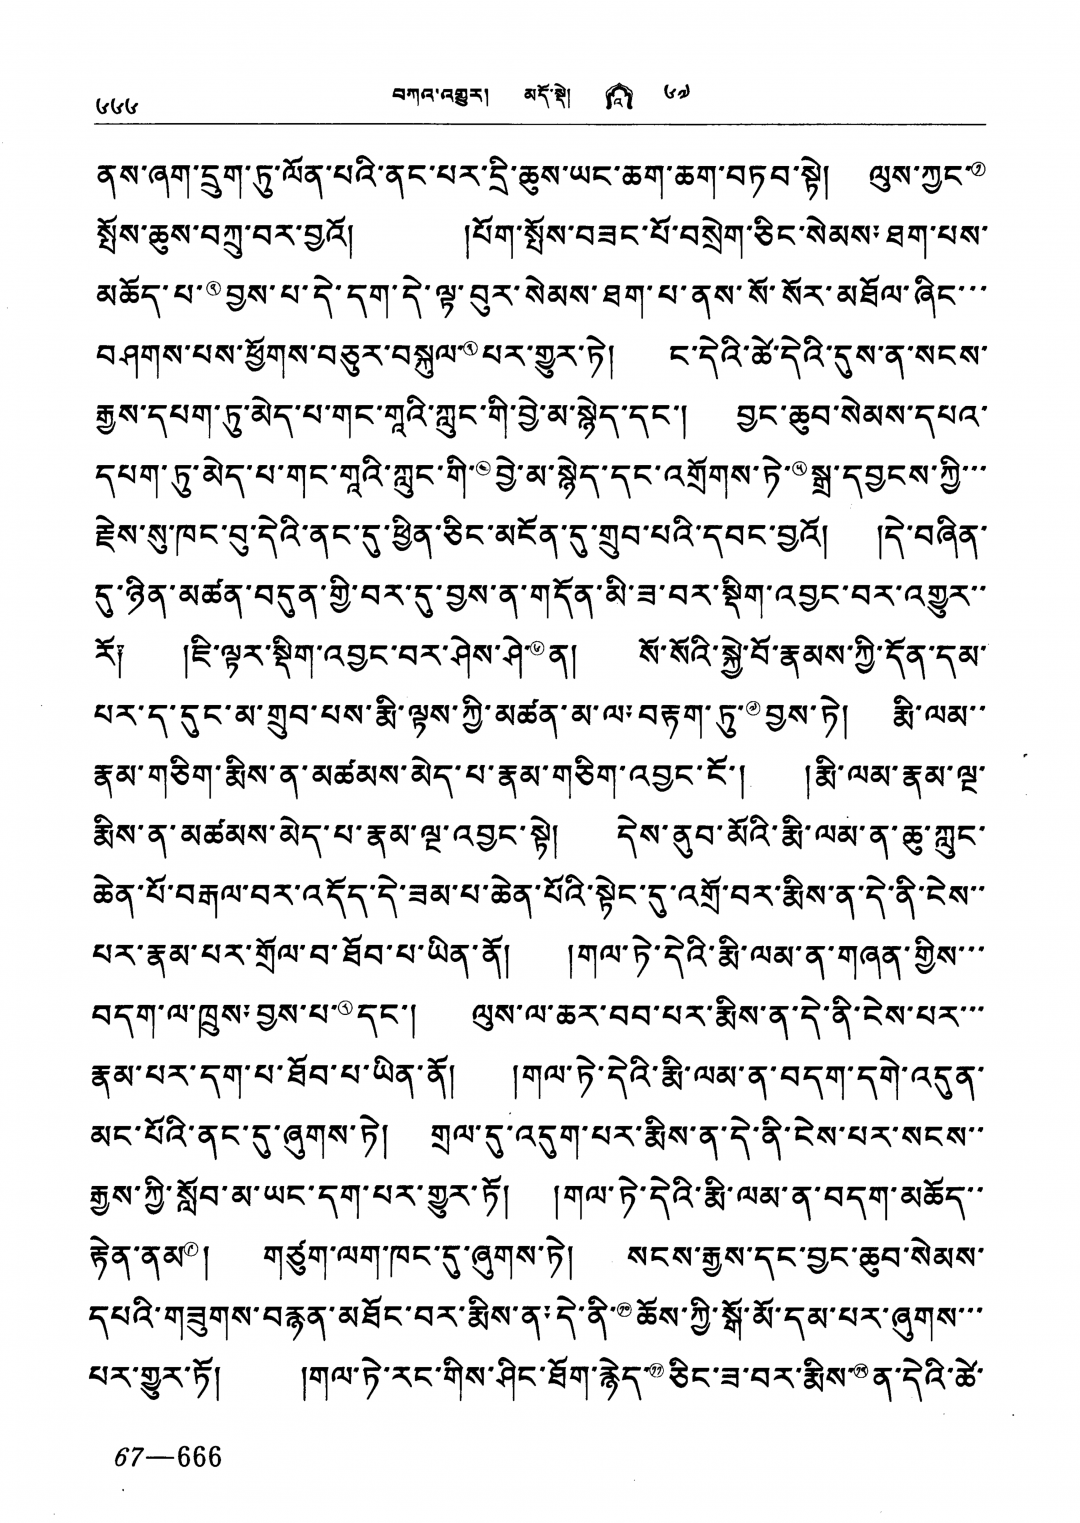 ༦༦༦ བཀའ་འགྱུར། མདོ་སྡེ། ༦༧
ནས་ཞག་དྲུག་ཏུ་ལོན་པའི་ནང་པར་དྲི་ཆུས་ཡང་ཆག་ཆག་བཏབ་སྟེ། ལུས་ཀྱང་
སྤོས་ཆུས་བཀྲུ་བར་བྱའོ། །པོག་སྤོས་བཟང་པོ་བསྲེག་ཅིང་སེམས་ཐག་པས་
མཆོད་པ་བྱས་པ་དེ་དག་དེ་ལྟ་བུར་སེམས་ཐག་པ་ནས་སོ་སོར་མཐོལ་ཞིང་
བཤགས་པས་ཕྱོགས་བཅུར་བསྐུལ་པར་གྱུར་ཏེ། ང་དེའི་ཚེ་དེའི་དུས་ན་སངས་
རྒྱས་དཔག་ཏུ་མེད་པ་གང་གཱའི་ཀླུང་གི་བྱེ་མ་སྙེད་དང་། བྱང་ཆུབ་སེམས་དཔའ་
དཔག་ཏུ་མེད་པ་གང་གཱའི་ཀླུང་གི་བྱེ་མ་སྙེད་དང་འགྲོགས་ཏེ་སྒྲ་དབྱངས་ཀྱི་
རྗེས་སུ་ཁང་བུ་དེའི་ནང་དུ་ཕྱིན་ཅིང་མངོན་དུ་གྲུབ་པའི་དབང་བྱའོ། །དེ་བཞིན་
དུ་ཉིན་མཚན་བདུན་གྱི་བར་དུ་བྱས་ན་གདོན་མི་ཟ་བར་སྡིག་འབྱང་བར་འགྱུར་
རོ། །ཇི་ལྟར་སྡིག་འབྱང་བར་ཤེས་ཤེ་ན། སོ་སོའི་སྐྱེ་བོ་རྣམས་ཀྱི་དོན་དམ་
པར་ད་དུང་མ་གྲུབ་པས་རྨི་ལྟས་ཀྱི་མཚན་མ་ལ་བརྟག་ཏུ་བྱས་ཏེ། རྨི་ལམ་
རྣམ་གཅིག་རྨིས་ན་མཚམས་མེད་པ་རྣམ་གཅིག་འབྱང་ངོ་། །རྨི་ལམ་རྣམ་ལྔ་
རྨིས་ན་མཚམས་མེད་པ་རྣམ་ལྔ་འབྱང་སྟེ། དེས་ནུབ་མོའི་རྨི་ལམ་ན་ཆུ་ཀླུང་
ཆེན་པོ་བརྒལ་བར་འདོད་དེ་ཟམ་པ་ཆེན་པོའི་སྟེང་དུ་འགྲོ་བར་རྨིས་ན་དེ་ནི་ངེས་
པར་རྣམ་པར་གྲོལ་བ་ཐོབ་པ་ཡིན་ནོ། །གལ་ཏེ་དེའི་རྨི་ལམ་ན་གཞན་གྱིས་
བདག་ལ་ཁྲུས་བྱས་པ་དང་། ལུས་ལ་ཆར་བབ་པར་རྨིས་ན་དེ་ནི་ངེས་པར་
རྣམ་པར་དག་པ་ཐོབ་པ་ཡིན་ནོ། །གལ་ཏེ་དེའི་རྨི་ལམ་ན་བདག་དགེ་འདུན་
མང་པོའི་ནང་དུ་ཞུགས་ཏེ། གྲལ་དུ་འདུག་པར་རྨིས་ན་དེ་ནི་ངེས་པར་སངས་
རྒྱས་ཀྱི་སློབ་མ་ཡང་དག་པར་གྱུར་ཏོ། །གལ་ཏེ་དེའི་རྨི་ལམ་ན་བདག་མཆོད་
རྟེན་ནམ། གཙུག་ལག་ཁང་དུ་ཞུགས་ཏེ། སངས་རྒྱས་དང་བྱང་ཆུབ་སེམས་
དཔའི་གཟུགས་བརྙན་མཐོང་བར་རྨིས་ན་དེ་ནི་ཆོས་ཀྱི་སྒོ་མོ་དམ་པར་ཞུགས་
པར་གྱུར་ཏོ། །གལ་ཏེ་རང་གིས་ཤིང་ཐོག་རྙེད་ཅིང་ཟ་བར་རྨིས་ན་དེའི་ཚེ་
67—666